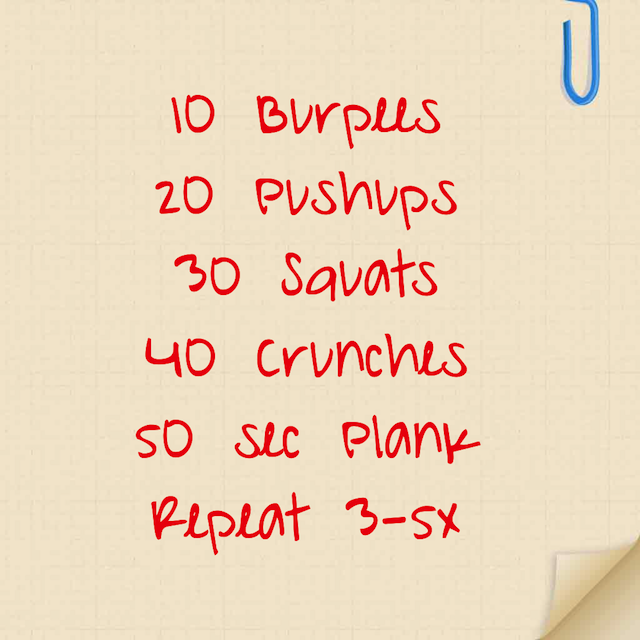 10 Burpees
20 Pushups
30 Squats
40 Crunches
50 sec Plank
Repeat 3-5x